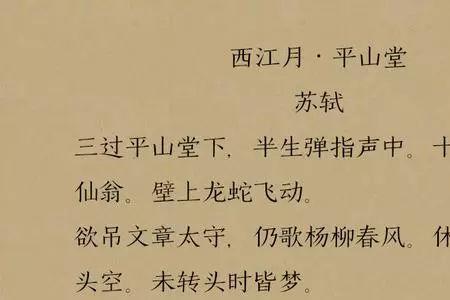 西江月·平山堂
苏轼
三过平山堂下，半生弹指声中。十
仙翁。壁上龙蛇飞动。
欲吊文章太守，仍歌杨柳春风。休
头空。未转头时皆梦。